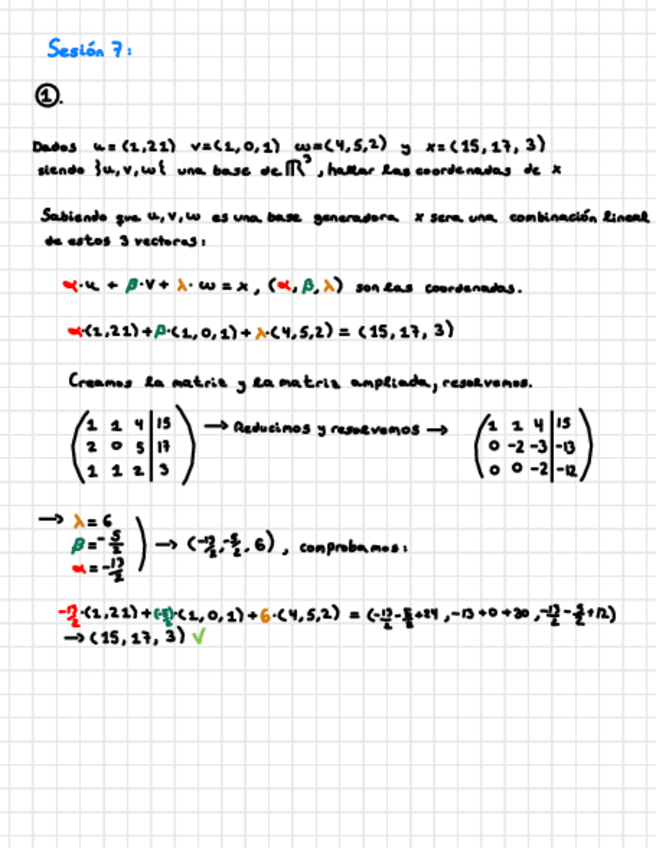 Sesión 7:
①.
Dados u=(1,21) v=(1,0,1) w=(4,5,2) y x=(15,17,3)
siendo {u,v,w} una base de ℝ³, hallar las coordenadas de x
Sabiendo que u,v,w es una base generadora x sera una combinación lineal
de estos 3 vectores:
α·u + β·v + λ·w = x, (α, β, λ) son las coordenadas.
α·(1,21)+β·(1,0,1)+λ·(4,5,2) = (15,17,3)
Creamos la matriz y la matriz ampliada, resolvemos.
(1 1 4 | 15) → Reducimos y resolvemos → (1 1 4 | 15)
(2 0 5 | 17) (0 -2 -3 | -13)
(1 1 2 | 3) (0 0 -2 | -12)
→ λ = 6
β = -5/2 ) → (-13/2, -5/2, 6), comprobamos:
α = -13/2
-13/2·(1,21)+(-5/2)·(1,0,1)+6·(4,5,2) = (-13/2-5/2+24, -13+0+30, -13/2-5/2+12)
→ (15,17,3) √